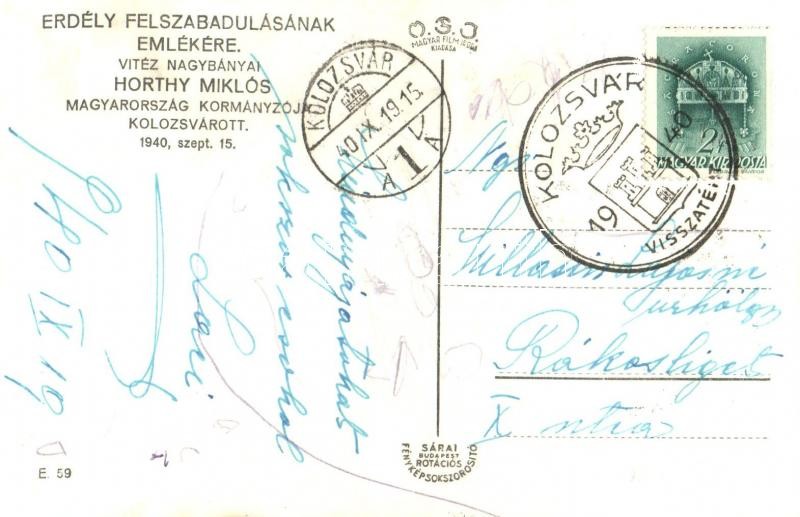 ERDÉLY FELSZABADULÁSÁNAK
EMLÉKÉRE.
VITÉZ NAGYBÁNYAI
HORTHY MIKLÓS
MAGYARORSZÁG KORMÁNYZÓJA
KOLOZSVÁROTT.
1940, szept. 15.
O.S.J.
MAGYAR FILM IRODA
KIADÁSA
KOLOZSVÁR
40 IX. 19. 15.
A 1 A
KOLOZSVÁR
19 40
VISSZATÉRT
2f
MAGYAR KIR. POSTA
Lajosné
Rákosliget
X utca
sokszor csókol
Laci
940 IX 19
SÁRAI
BUDAPEST
ROTÁCIÓS
FÉNYKÉPSOKSZOROSITÓ
E. 59